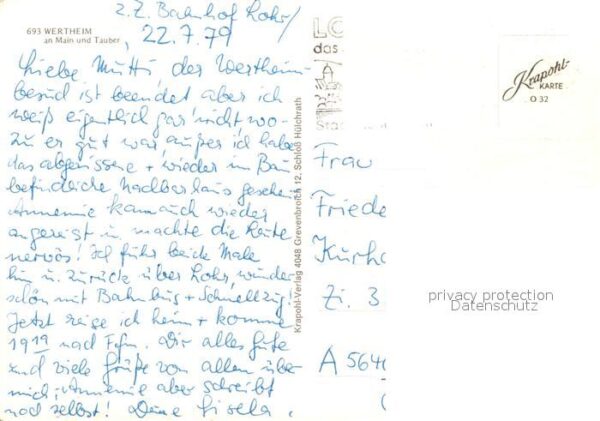 z.Z. Bahnhof Lohr/
693 WERTHEIM
an Main und Tauber
, 22.7.79
Liebe Mutti, der Wertheim-
besuch ist beendet aber ich
weiß eigentlich gar nicht, wo-
zu er gut war, außer ich habe
das abgerissene + wieder im Bau
befindliche Nachbarhaus gesehen.
Annemie kam auch wieder
angereist u. machte die Leute
nervös! Ich fuhr beide Male
hin u. zurück über Lohr, wunder-
schön mit Bahnbus + Schnellzug!
Jetzt reise ich heim + komme
19 19 nach Ffm. Dir alles Gute
und viele Grüße von allen über
mich; Annemie aber schreibt
noch selbst! Deine Gisela.
Krapohl-Verlag 4048 Grevenbroich 12, Schloß Hülchrath
LO
das
Sta
Krapohl-
KARTE
O 32
Frau
Friede
Kurha
Zi. 3
A 564
privacy protection
Datenschutz